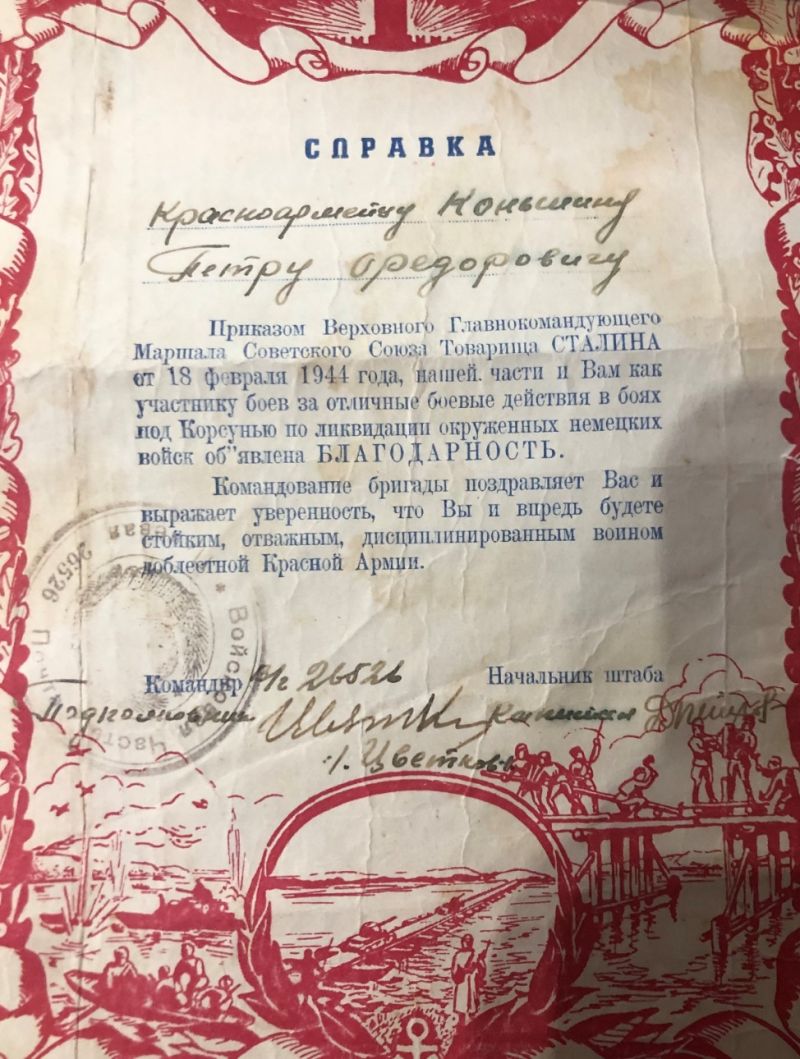 СПРАВКА
Красноармейцу Коньшину
Петру Федоровичу
Приказом Верховного Главнокомандующего
Маршала Советского Союза Товарища СТАЛИНА
от 18 февраля 1944 года, нашей части и Вам как
участнику боев за отличные боевые действия в боях
под Корсунью по ликвидации окруженных немецких
войск об"явлена БЛАГОДАРНОСТЬ.
Командование бригады поздравляет Вас и
выражает уверенность, что Вы и впредь будете
стойким, отважным, дисциплинированным воином
доблестной Красной Армии.
Войсковая Часть Полевая 26526
Командир в/ч 26526 Начальник штаба
Подполковник Капитан
/. Цветков